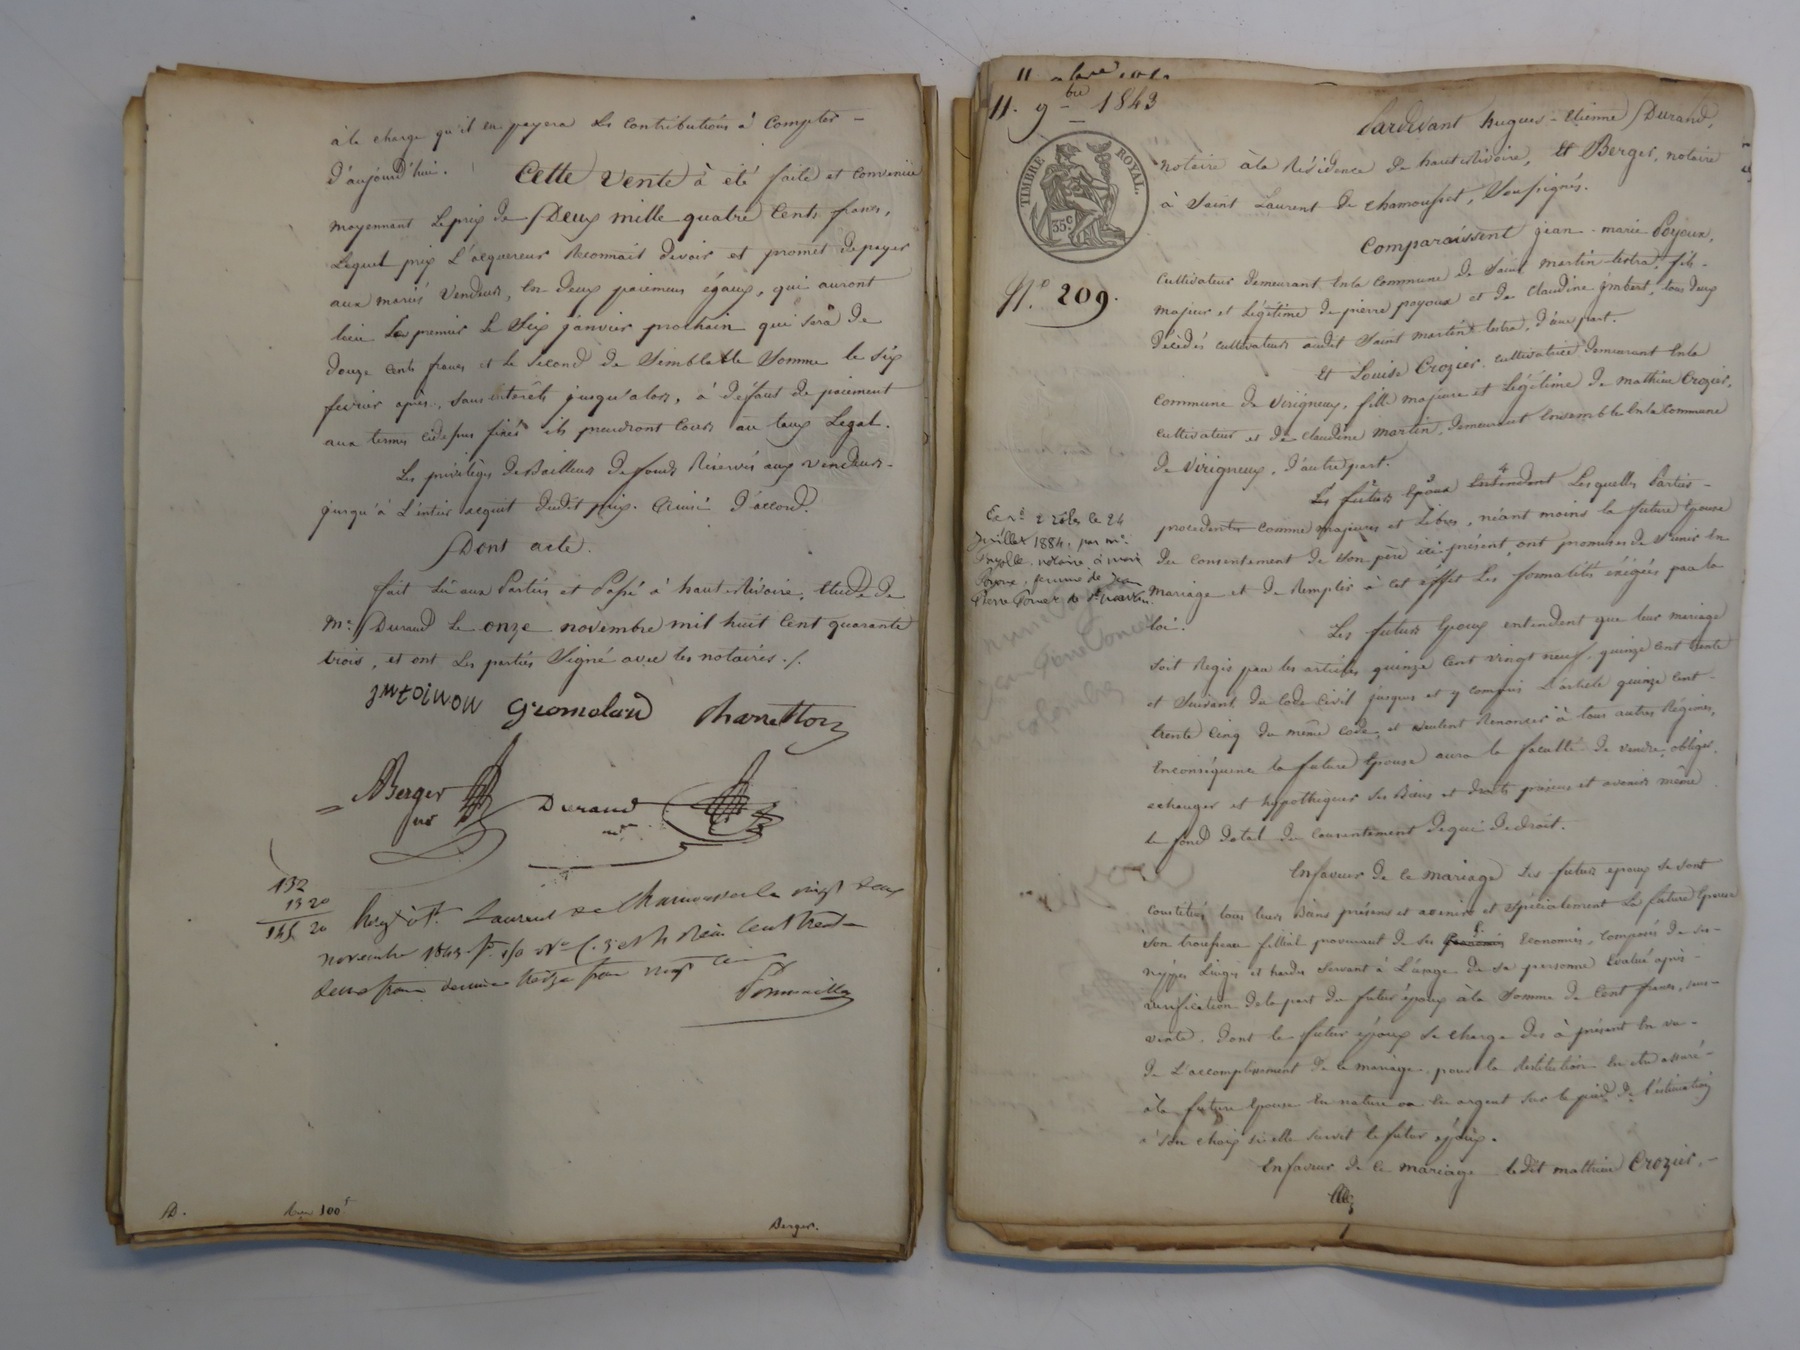 à la charge qu'il en payera les contributions à compter
d'aujourd'hui. Cette vente à été faite et convenue
moyennant le prix de Deux mille quatre cents francs,
lequel prix l'acquereur reconnait devoir et promet de payer
aux mariés vendeurs, en deux paiemens égaux, qui auront
lieu le premier le six janvier prochain qui sera de
douze cents francs et le second de semblable somme le six
fevrier après, sans intérêts jusqu'alors, à défaut de paiement
aux termes cidessus fixés ils prendront cours au taux légal.
Les privilèges de Bailleur de fonds réservés aux vendeurs
jusqu'à l'entier acquit dudit prix. Ainsi d'accord.
Dont acte.
fait lû aux Parties et Passé à hauterivoire, étude de
Me. Durand le onze novembre mil huit cent quarante
trois, et ont les parties signé avec les notaires ./.
Berger
nre
Durand
nre
132
13 20
145 20
St. Laurent de Chamousset le vingt deux
novembre 1843 fo
D.
100
Berger.
11. 9bre 1843
TIMBRE ROYAL.
35c
No. 209.
Pardevant hugues-Etienne Durand,
notaire à la Résidence de hauterivoire, Et Berger, notaire
à Saint Laurent de Chamousset, Soussignés.
Comparaissent jean-marie Poyoux,
cultivateur demeurant en la commune de Saint martin lestra, fils
majeur et légitime de pierre poyoux et de Claudine jmbert, tous deux
décédés cultivateurs audit Saint martin lestra, d'une part.
Et Louise Crozier cultivatrice demeurant en la
commune de Virigneux, fille majeure et légitime de mathieu Crozier,
cultivateur et de claudine martin, demeurant ensemble en la commune
de Virigneux, d'autre part.
Les futurs époux entendent Lesquelles Parties
procedentes comme majeures et libres, néant moins la future épouse
du consentement de son père ici présent, ont promis de s'unir en
mariage et de remplir à cet effet les formalités éxigées par la
loi. Les futurs époux entendent que leur mariage
soit régis par les articles quinze cent vingt neuf, quinze cent trente
et suivant du code civil jusques et y compris l'article quinze cent
trente cinq du même code, et veulent renoncer à tous autres régimes,
Enconséquence la future épouse aura la faculté de vendre, obliger,
echanger et hypothequer ses Biens et droits présens et avenirs même
le fond dotal du consentement de qui de droit.
Enfaveur de ce mariage les futurs époux se sont
constitués tous leurs Biens présens et avenirs et spécialement la future épouse
son trousseau fillial provenant de ses économies, composés de ses
nippes linges et hardes servant à l'usage de sa personne évalué après
verification dela part du futur époux à la somme de cent francs,
vente, dont le futur époux se charge des à présent en vu
de l'accomplissement de ce mariage, pour la restitution en etre assuré
à la future épouse en nature ou en argent sur le pied de l'estimation
à son choix si elle survit le futur époux.
Enfaveur de ce mariage ledit mathieu Crozier,
2 rôles le 24
Juillet 1884, par me.
notaire, à marie
Poyoux, femme de Jean
Pierre de St martin.